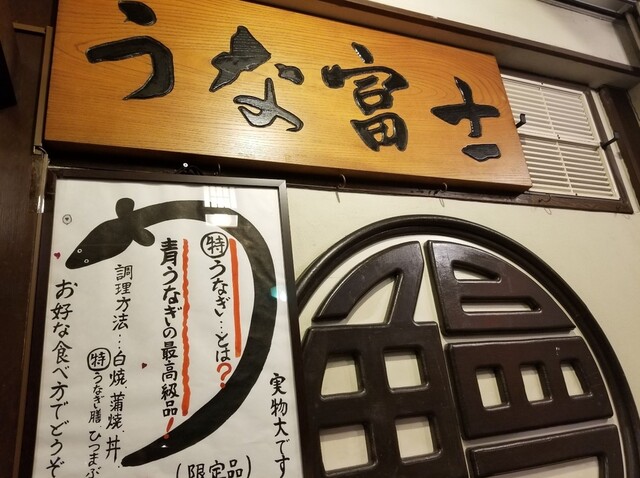 うな富士
実物大です
㊕うなぎ…とは?
青うなぎの最高級品!
(限定品)
調理方法…白焼、蒲焼、丼、
㊕うなぎ膳、ひつまぶ
お好な食べ方でどうぞ